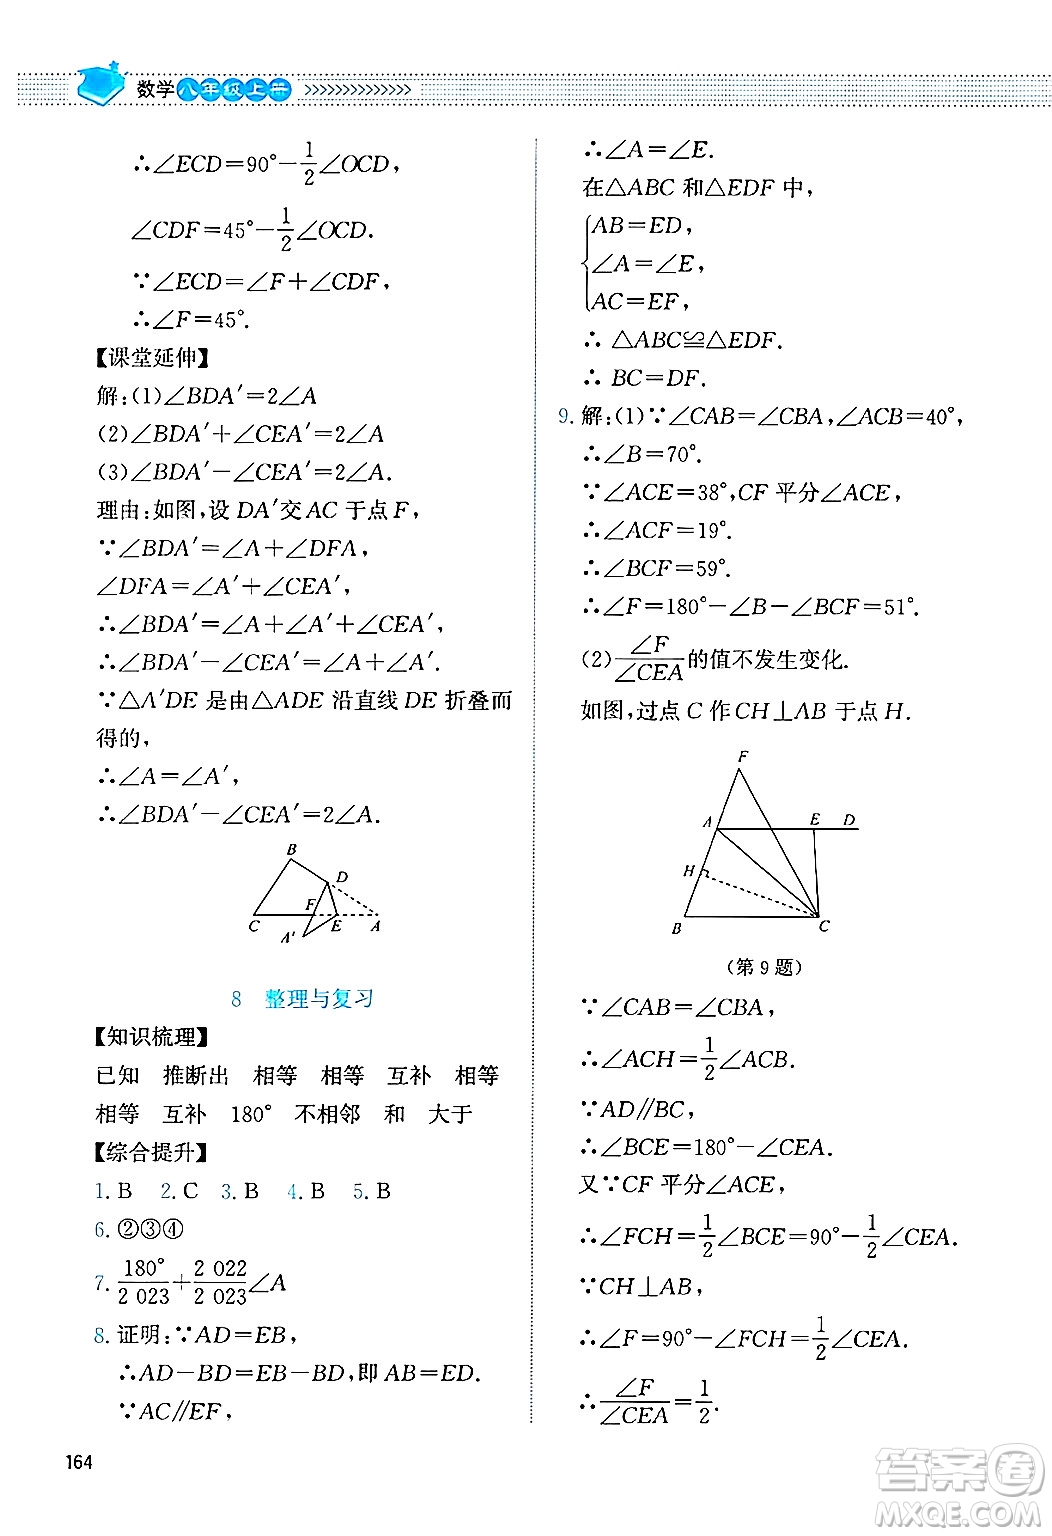 数学八年级上册
∴∠ECD=90°-1/2∠OCD,
∠CDF=45°-1/2∠OCD.
∵∠ECD=∠F+∠CDF,
∴∠F=45°.
【课堂延伸】
解:(1)∠BDA′=2∠A
(2)∠BDA′+∠CEA′=2∠A
(3)∠BDA′-∠CEA′=2∠A.
理由:如图,设DA′交AC于点F,
∵∠BDA′=∠A+∠DFA,
∠DFA=∠A′+∠CEA′,
∴∠BDA′=∠A+∠A′+∠CEA′,
∴∠BDA′-∠CEA′=∠A+∠A′.
∵△A′DE是由△ADE沿直线DE折叠而
得的,
∴∠A=∠A′,
∴∠BDA′-∠CEA′=2∠A.
B
D
F
C
E
A
A′
8 整理与复习
【知识梳理】
已知 推断出 相等 相等 互补 相等
相等 互补 180° 不相邻 和 大于
【综合提升】
1. B 2. C 3. B 4. B 5. B
6. ②③④
7. 180°/2 023+2 022/2 023∠A
8. 证明:∵AD=EB,
∴AD-BD=EB-BD,即AB=ED.
∵AC∥EF,
∴∠A=∠E.
在△ABC和△EDF中,
AB=ED,
∠A=∠E,
AC=EF,
∴△ABC≌△EDF.
∴BC=DF.
9. 解:(1)∵∠CAB=∠CBA,∠ACB=40°,
∴∠B=70°.
∵∠ACE=38°,CF平分∠ACE,
∴∠ACF=19°.
∴∠BCF=59°.
∴∠F=180°-∠B-∠BCF=51°.
(2)∠F/∠CEA的值不发生变化.
如图,过点C作CH⊥AB于点H.
F
A
E
D
H
B
C
(第9题)
∵∠CAB=∠CBA,
∴∠ACH=1/2∠ACB.
∵AD∥BC,
∴∠BCE=180°-∠CEA.
又∵CF平分∠ACE,
∴∠FCH=1/2∠BCE=90°-1/2∠CEA.
∵CH⊥AB,
∴∠F=90°-∠FCH=1/2∠CEA.
∴∠F/∠CEA=1/2.
164
答案圈
MXQE.COM